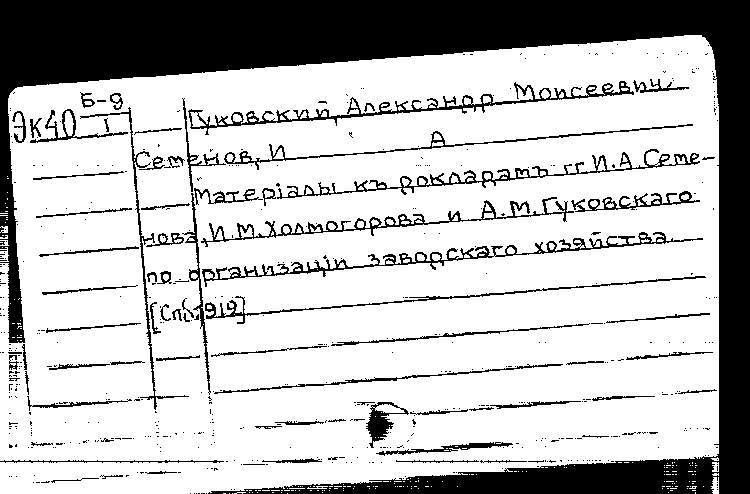 Эк40 Б-9
1
Гуковский, Александр Моисеевич,
Семенов, И А
Матеріалы къ докладамъ гг. И.А. Семе-
нова, И.М. Холмогорова и А.М. Гуковскаго
по организаціи заводскаго хозяйства.